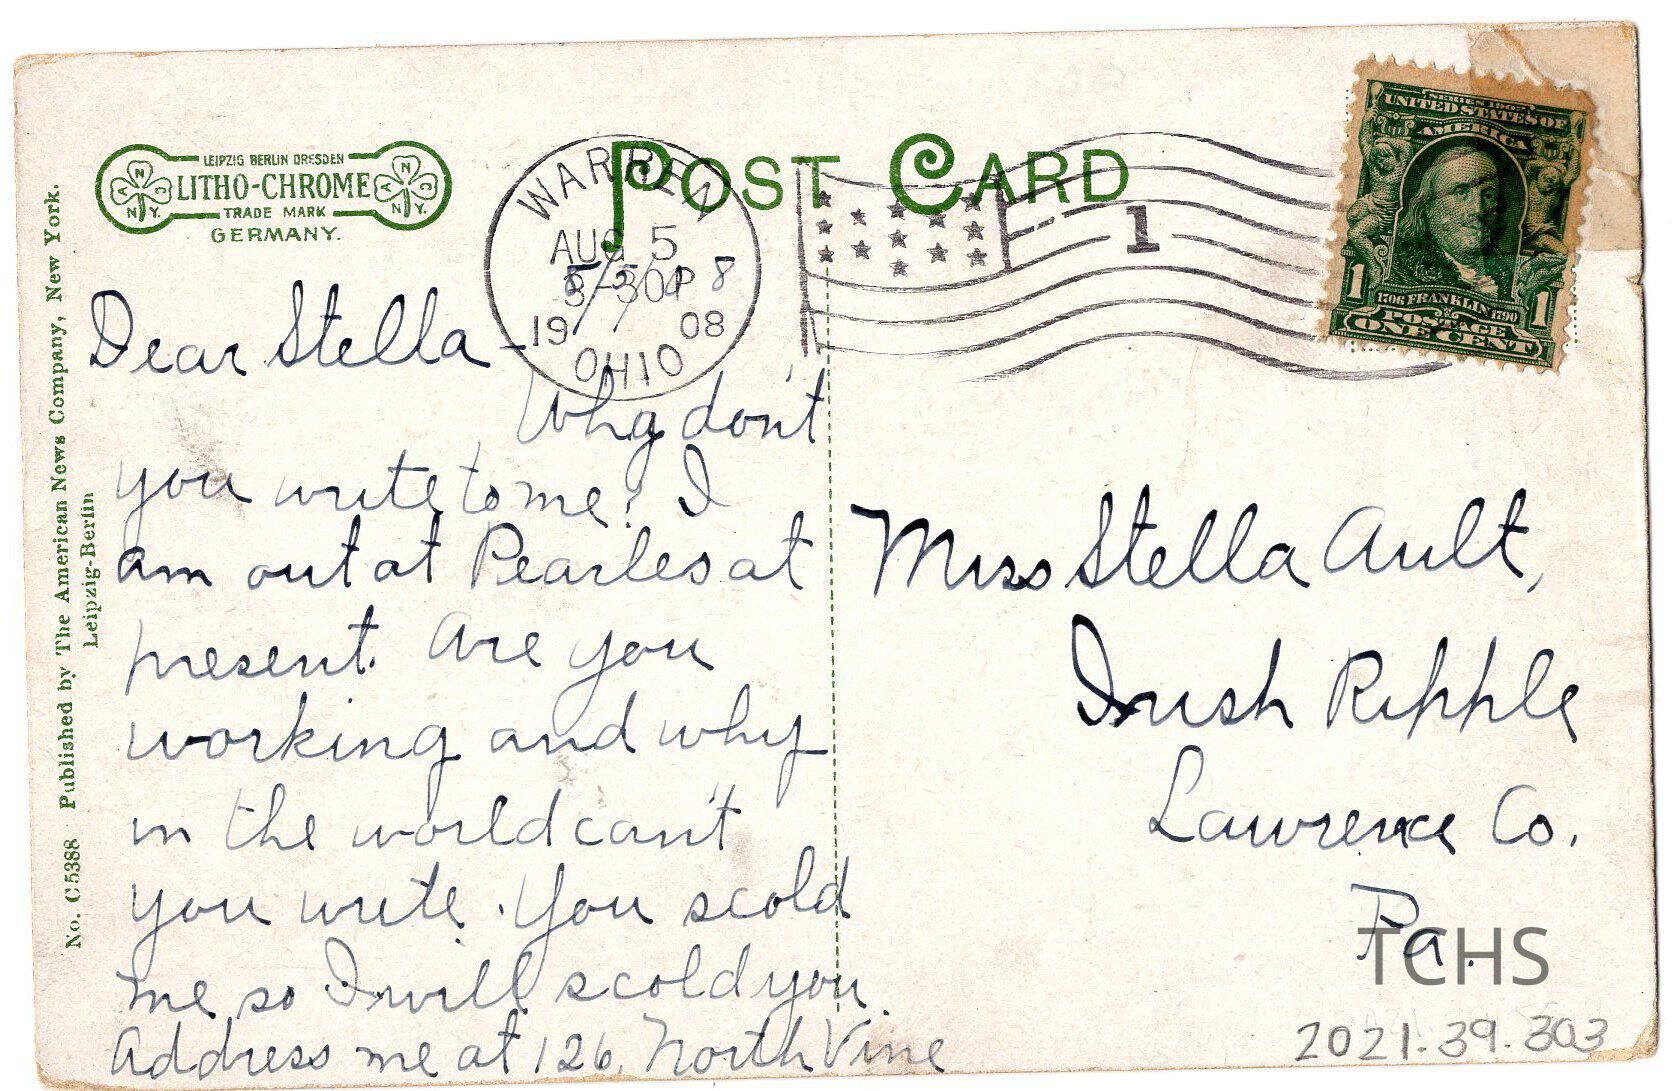 POST CARD
LEIPZIG BERLIN DRESDEN
LITHO-CHROME
TRADE MARK
GERMANY.
ANC
N.Y.
ANC
N.Y.
WARREN
AUG 5
3-30P
1908
OHIO
8/5/08
1
SERIES 1902
UNITED STATES OF
AMERICA
1706 FRANKLIN 1790
1 1
POSTAGE
ONE CENT
No. C5388 Published by The American News Company, New York.
Leipzig-Berlin
Dear Stella -
Why don't
you write to me? I
am out at Pearles at
present. Are you
working and why
in the world can't
you write. You scold
me so I will scold you.
Address me at 126. North Vine
Miss Stella Ault,
Irish Ripple
Lawrence Co.
Pa.
TCHS
2021.39.303